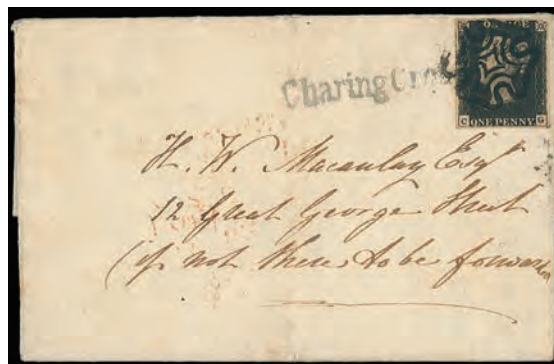 Charing Cross
C ONE PENNY G
H. W. Macaulay Esqr
12 Great George Street
(if not there to be forwarded